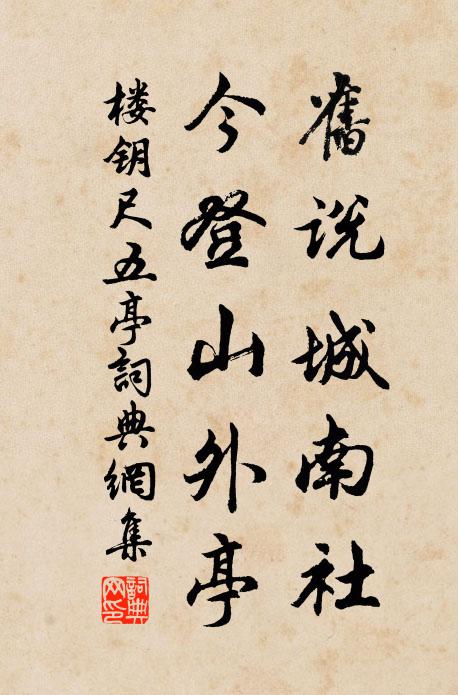 舊説城南社
今登山外亭
楼钥尺五亭詞典網集
詞典網印